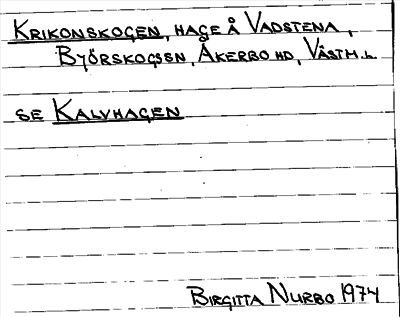 KRIKONSKOGEN, HAGE Å VADSTENA,
BJÖRSKOGSSN, ÅKERBO HD, VÄSTM.L.
SE KALVHAGEN
BIRGITTA NURBO 1974